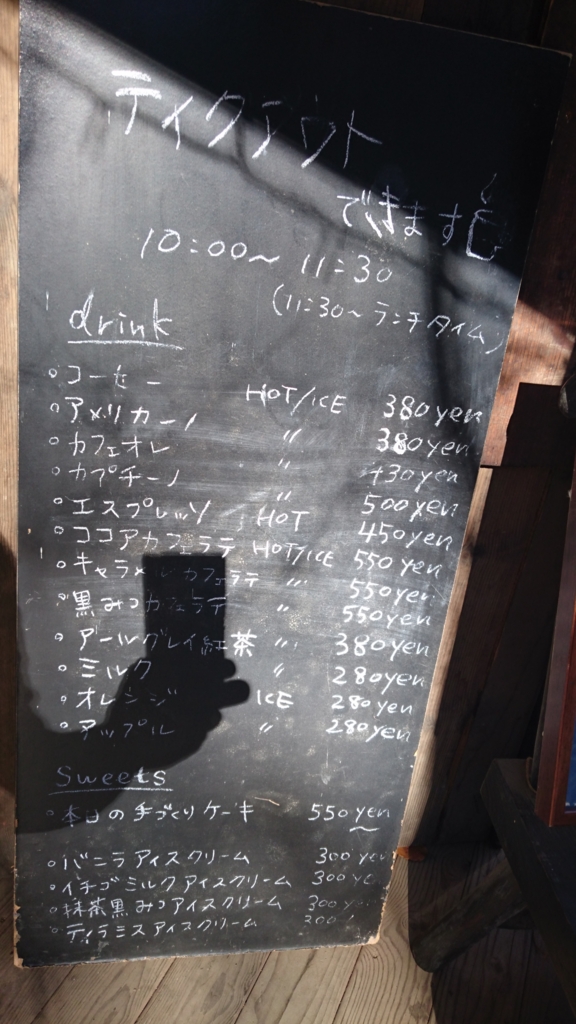 テイクアウト
できます
10:00〜 11:30
(11:30〜 ランチタイム)
drink
コーヒー HOT/ICE 380yen
アメリカーノ 〃 380yen
カフェオレ 〃 430yen
カプチーノ 〃 500yen
エスプレッソ HOT 450yen
ココアカフェラテ HOT/ICE 550yen
キャラメルカフェラテ 〃 550yen
黒みつカフェラテ 〃 550yen
アールグレイ紅茶 〃 380yen
ミルク 〃 280yen
オレンジ ICE 280yen
アップル 〃 280yen
Sweets
本日の手づくりケーキ 550yen〜
バニラアイスクリーム 300yen
イチゴミルクアイスクリーム 300yen
抹茶黒みつアイスクリーム 300yen
ティラミスアイスクリーム 300